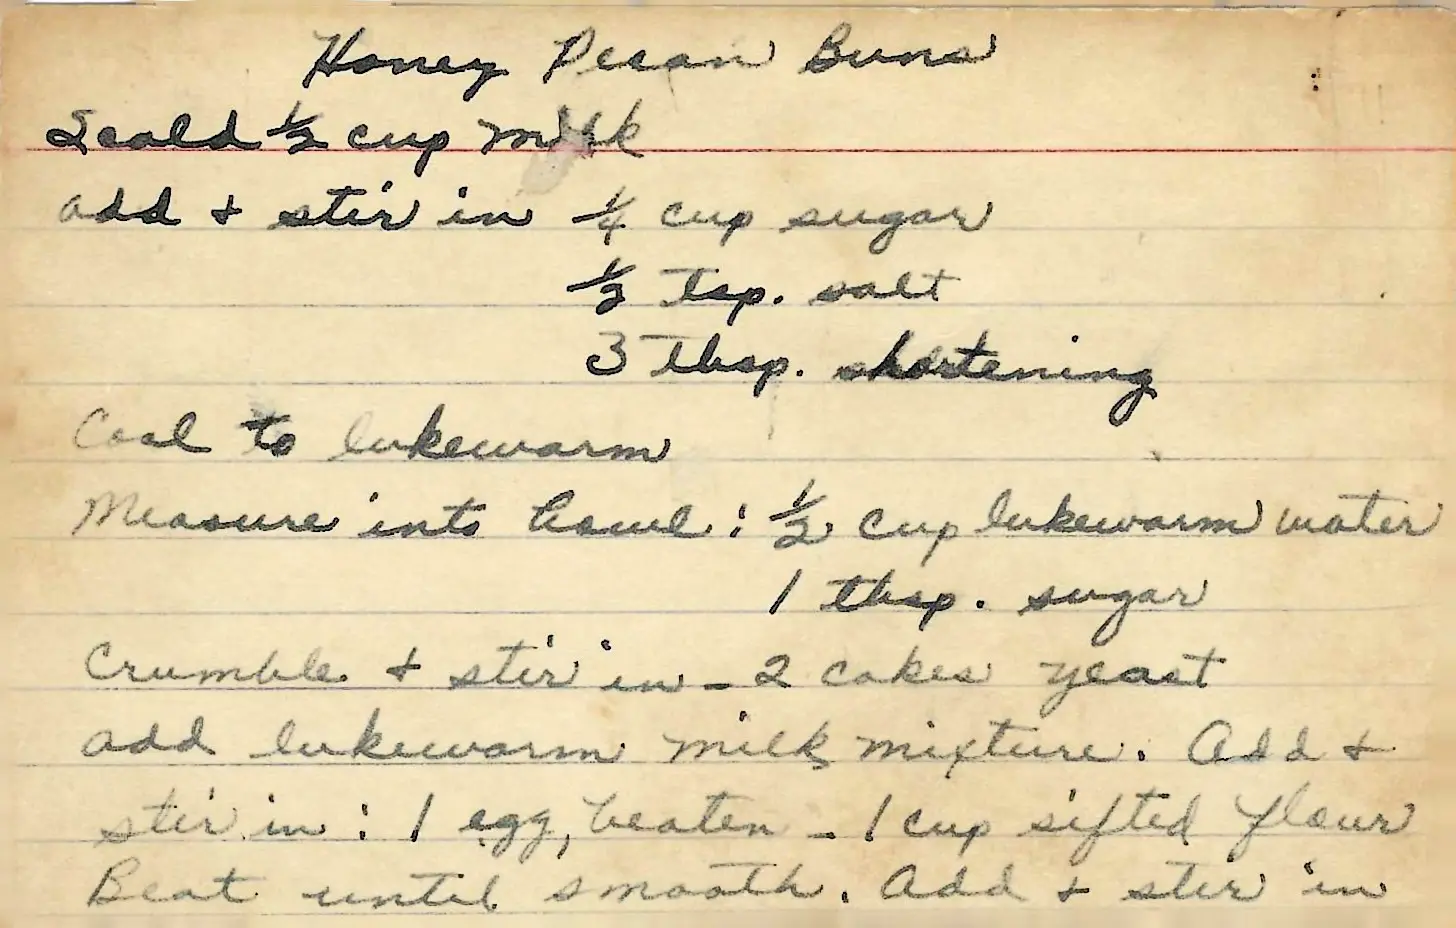 Honey Pecan Buns
Scald 1/2 cup milk
add + stir in 1/4 cup sugar
1/2 tsp. salt
3 tbsp. shortening
Cool to lukewarm
Measure into bowl : 1/2 cup lukewarm water
1 tbsp. sugar
Crumble + stir in - 2 cakes yeast
add lukewarm milk mixture. Add +
stir in : 1 egg, beaten - 1 cup sifted flour
Beat until smooth. Add + stir in